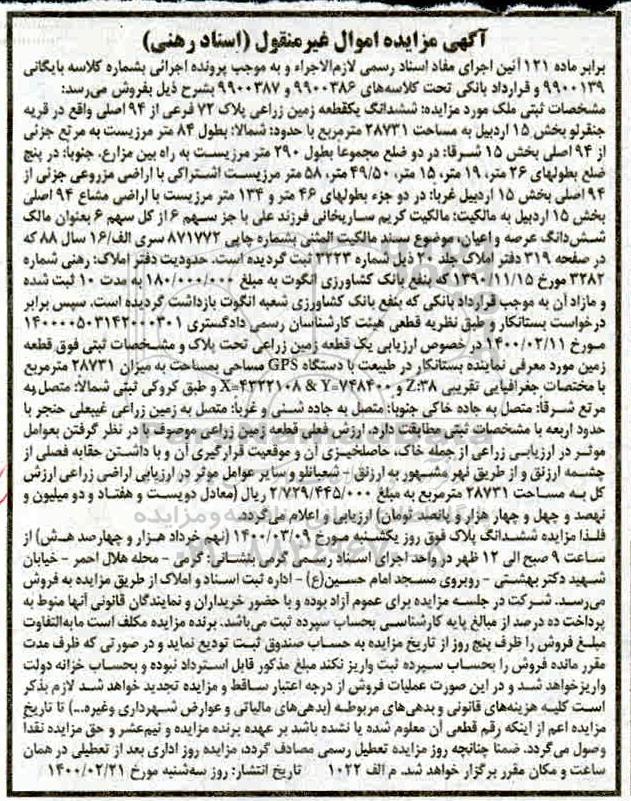 آگهی مزایده اموال غیرمنقول (اسناد رهنی)
برابر ماده ۱۲۱ آئین اجرای مفاد اسناد رسمی لازم‌الاجراء و به موجب پرونده اجرائی بشماره کلاسه بایگانی
۹۹۰۰۱۳۹ و قرارداد بانکی تحت کلاسه‌های ۹۹۰۰۳۸۶ و ۹۹۰۰۳۸۷ بشرح ذیل بفروش می‌رسد:
مشخصات ثبتی ملک مورد مزایده: ششدانگ یکقطعه زمین زراعی پلاک ۷۲ فرعی از ۹۴ اصلی واقع در قریه
جنقرلو بخش ۱۵ اردبیل به مساحت ۲۸۷۳۱ مترمربع با حدود: شمالا: بطول ۸۴ متر مرزیست به مرتع جزئی
از ۹۴ اصلی بخش ۱۵ شرقا: در دو ضلع مجموعا بطول ۲۹۰ متر مرزیست به راه بین مزارع. جنوبا: در پنج
ضلع بطولهای ۲۶ متر، ۱۹ متر، ۱۵ متر، ۴۹/۵۰ متر، ۵۸ متر مرزیست اشتراکی با اراضی مزروعی جزئی از
۹۴ اصلی بخش ۱۵ اردبیل غربا: در دو جزء بطولهای ۴۶ متر و ۱۳۴ متر مرزیست با اراضی مشاع ۹۴ اصلی
بخش ۱۵ اردبیل به مالکیت: مالکیت کریم ساریخانی فرزند علی با جز سهم ۶ از کل سهم ۶ بعنوان مالک
شش‌دانگ عرصه و اعیان، موضوع سند مالکیت المثنی بشماره چاپی ۸۷۱۷۷۲ سری الف/۱۶ سال ۸۸ که
در صفحه ۳۱۹ دفتر املاک جلد ۲۰ ذیل شماره ۳۲۲۳ ثبت گردیده است. محدودیت دفتر املاک: رهنی شماره
۳۲۸۲ مورخ ۱۳۹۰/۱۱/۱۵ که بنفع بانک کشاورزی انگوت به مبلغ ۱۸۰/۰۰۰/۰۰۰ به مدت ۱۰ ثبت شده
و مازاد آن به موجب قرارداد بانکی که بنفع بانک کشاورزی شعبه انگوت بازداشت گردیده است. سپس برابر
درخواست بستانکار و طبق نظریه قطعی هیئت کارشناسان رسمی دادگستری ۱۴۰۰۰۰۵۰۳۱۴۲۰۰۰۳۰۱
مورخ ۱۴۰۰/۰۲/۱۱ در خصوص ارزیابی یک قطعه زمین زراعی تحت پلاک و مشخصات ثبتی فوق قطعه
زمین مورد معرفی نماینده بستانکار در طبیعت با دستگاه GPS مساحی بمساحت به میزان ۲۸۷۳۱ مترمربع
با مختصات جغرافیایی تقریبی Z:۳۸ و X=۴۳۲۲۱۰۸ & Y=۷۴۸۴۰۰ و طبق کروکی ثبتی شمالا: متصل به
مرتع شرقا: متصل به جاده خاکی جنوبا: متصل به جاده شنی و غربا: متصل به زمین زراعی غیبعلی حنجر با
حدود اربعه با مشخصات ثبتی مطابقت دارد. ارزش فعلی قطعه زمین زراعی موصوف با در نظر گرفتن بعوامل
موثر در ارزیابی زراعی از جمله خاک، حاصلخیزی آن و موقعیت قرارگیری آن و با داشتن حقابه فصلی از
چشمه ارزنق و از طریق نهر مشهور به ارزنق – شعبانلو و سایر عوامل موثر در ارزیابی اراضی زراعی ارزش
کل به مساحت ۲۸۷۳۱ مترمربع به مبلغ ۲/۷۲۹/۴۴۵/۰۰۰ ریال (معادل دویست و هفتاد و دو میلیون و
نهصد و چهل و چهار هزار و پانصد تومان) ارزیابی و اعلام می‌گردد.
فلذا مزایده ششدانگ پلاک فوق روز یکشنبه مورخ ۱۴۰۰/۰۳/۰۹ (نهم خرداد هزار و چهارصد هش) از
ساعت ۹ صبح الی ۱۲ ظهر در واحد اجرای اسناد رسمی گرمی بنشانی: گرمی – محله هلال احمر – خیابان
شهید دکتر بهشتی – روبروی مسجد امام حسین(ع) – اداره ثبت اسناد و املاک از طریق مزایده به فروش
می‌رسد. شرکت در جلسه مزایده برای عموم آزاد بوده و با حضور خریداران و نمایندگان قانونی آنها منوط به
پرداخت ده درصد از مبالغ پایه کارشناسی بحساب سپرده ثبت می‌باشد. برنده مزایده مکلف است مابه‌التفاوت
مبلغ فروش را ظرف پنج روز از تاریخ مزایده به حساب صندوق ثبت تودیع نماید و در صورتی که ظرف مدت
مقرر مانده فروش را بحساب سپرده ثبت واریز نکند مبلغ مذکور قابل استرداد نبوده و بحساب خزانه دولت
واریز خواهد شد و در این صورت عملیات فروش از درجه اعتبار ساقط و مزایده تجدید خواهد شد لازم بذکر
است کلیه هزینه‌های قانونی و بدهی‌های مربوطه (بدهی‌های مالیاتی و عوارض شهرداری وغیره...) تا تاریخ
مزایده اعم از اینکه رقم قطعی آن معلوم شده یا نشده باشد بر عهده برنده مزایده و نیم‌عشر و حق مزایده نقدا
وصول می‌گردد. ضمنا چنانچه روز مزایده تعطیل رسمی مصادف گردد، مزایده روز اداری بعد از تعطیلی در همان
ساعت و مکان مقرر برگزار خواهد شد. م الف ۱۰۲۲ تاریخ انتشار: روز سه‌شنبه مورخ ۱۴۰۰/۰۲/۲۱